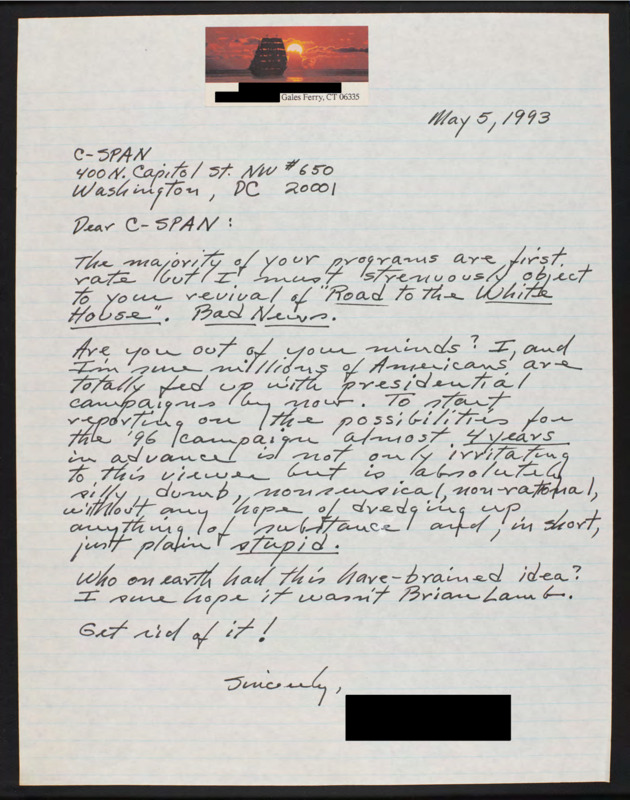 Gales Ferry, CT 06335
May 5, 1993
C-SPAN
400 N. Capitol St. NW #650
Washington, DC 20001
Dear C-SPAN:
The majority of your programs are first
rate but I must strenuously object
to your revival of "Road to the White
House". Bad News.
Are you out of your minds? I, and
I'm sure millions of Americans are
totally fed up with presidential
campaigns by now. To start
reporting on the possibilities for
the '96 campaign almost 4 years
in advance is not only irritating
to this viewer but is absolutely
silly, dumb, nonsensical, non-rational,
without any hope of dredging up
anything of substance and, in short,
just plain stupid.
Who on earth had this hare-brained idea?
I sure hope it wasn't Brian Lamb.
Get rid of it!
Sincerely,